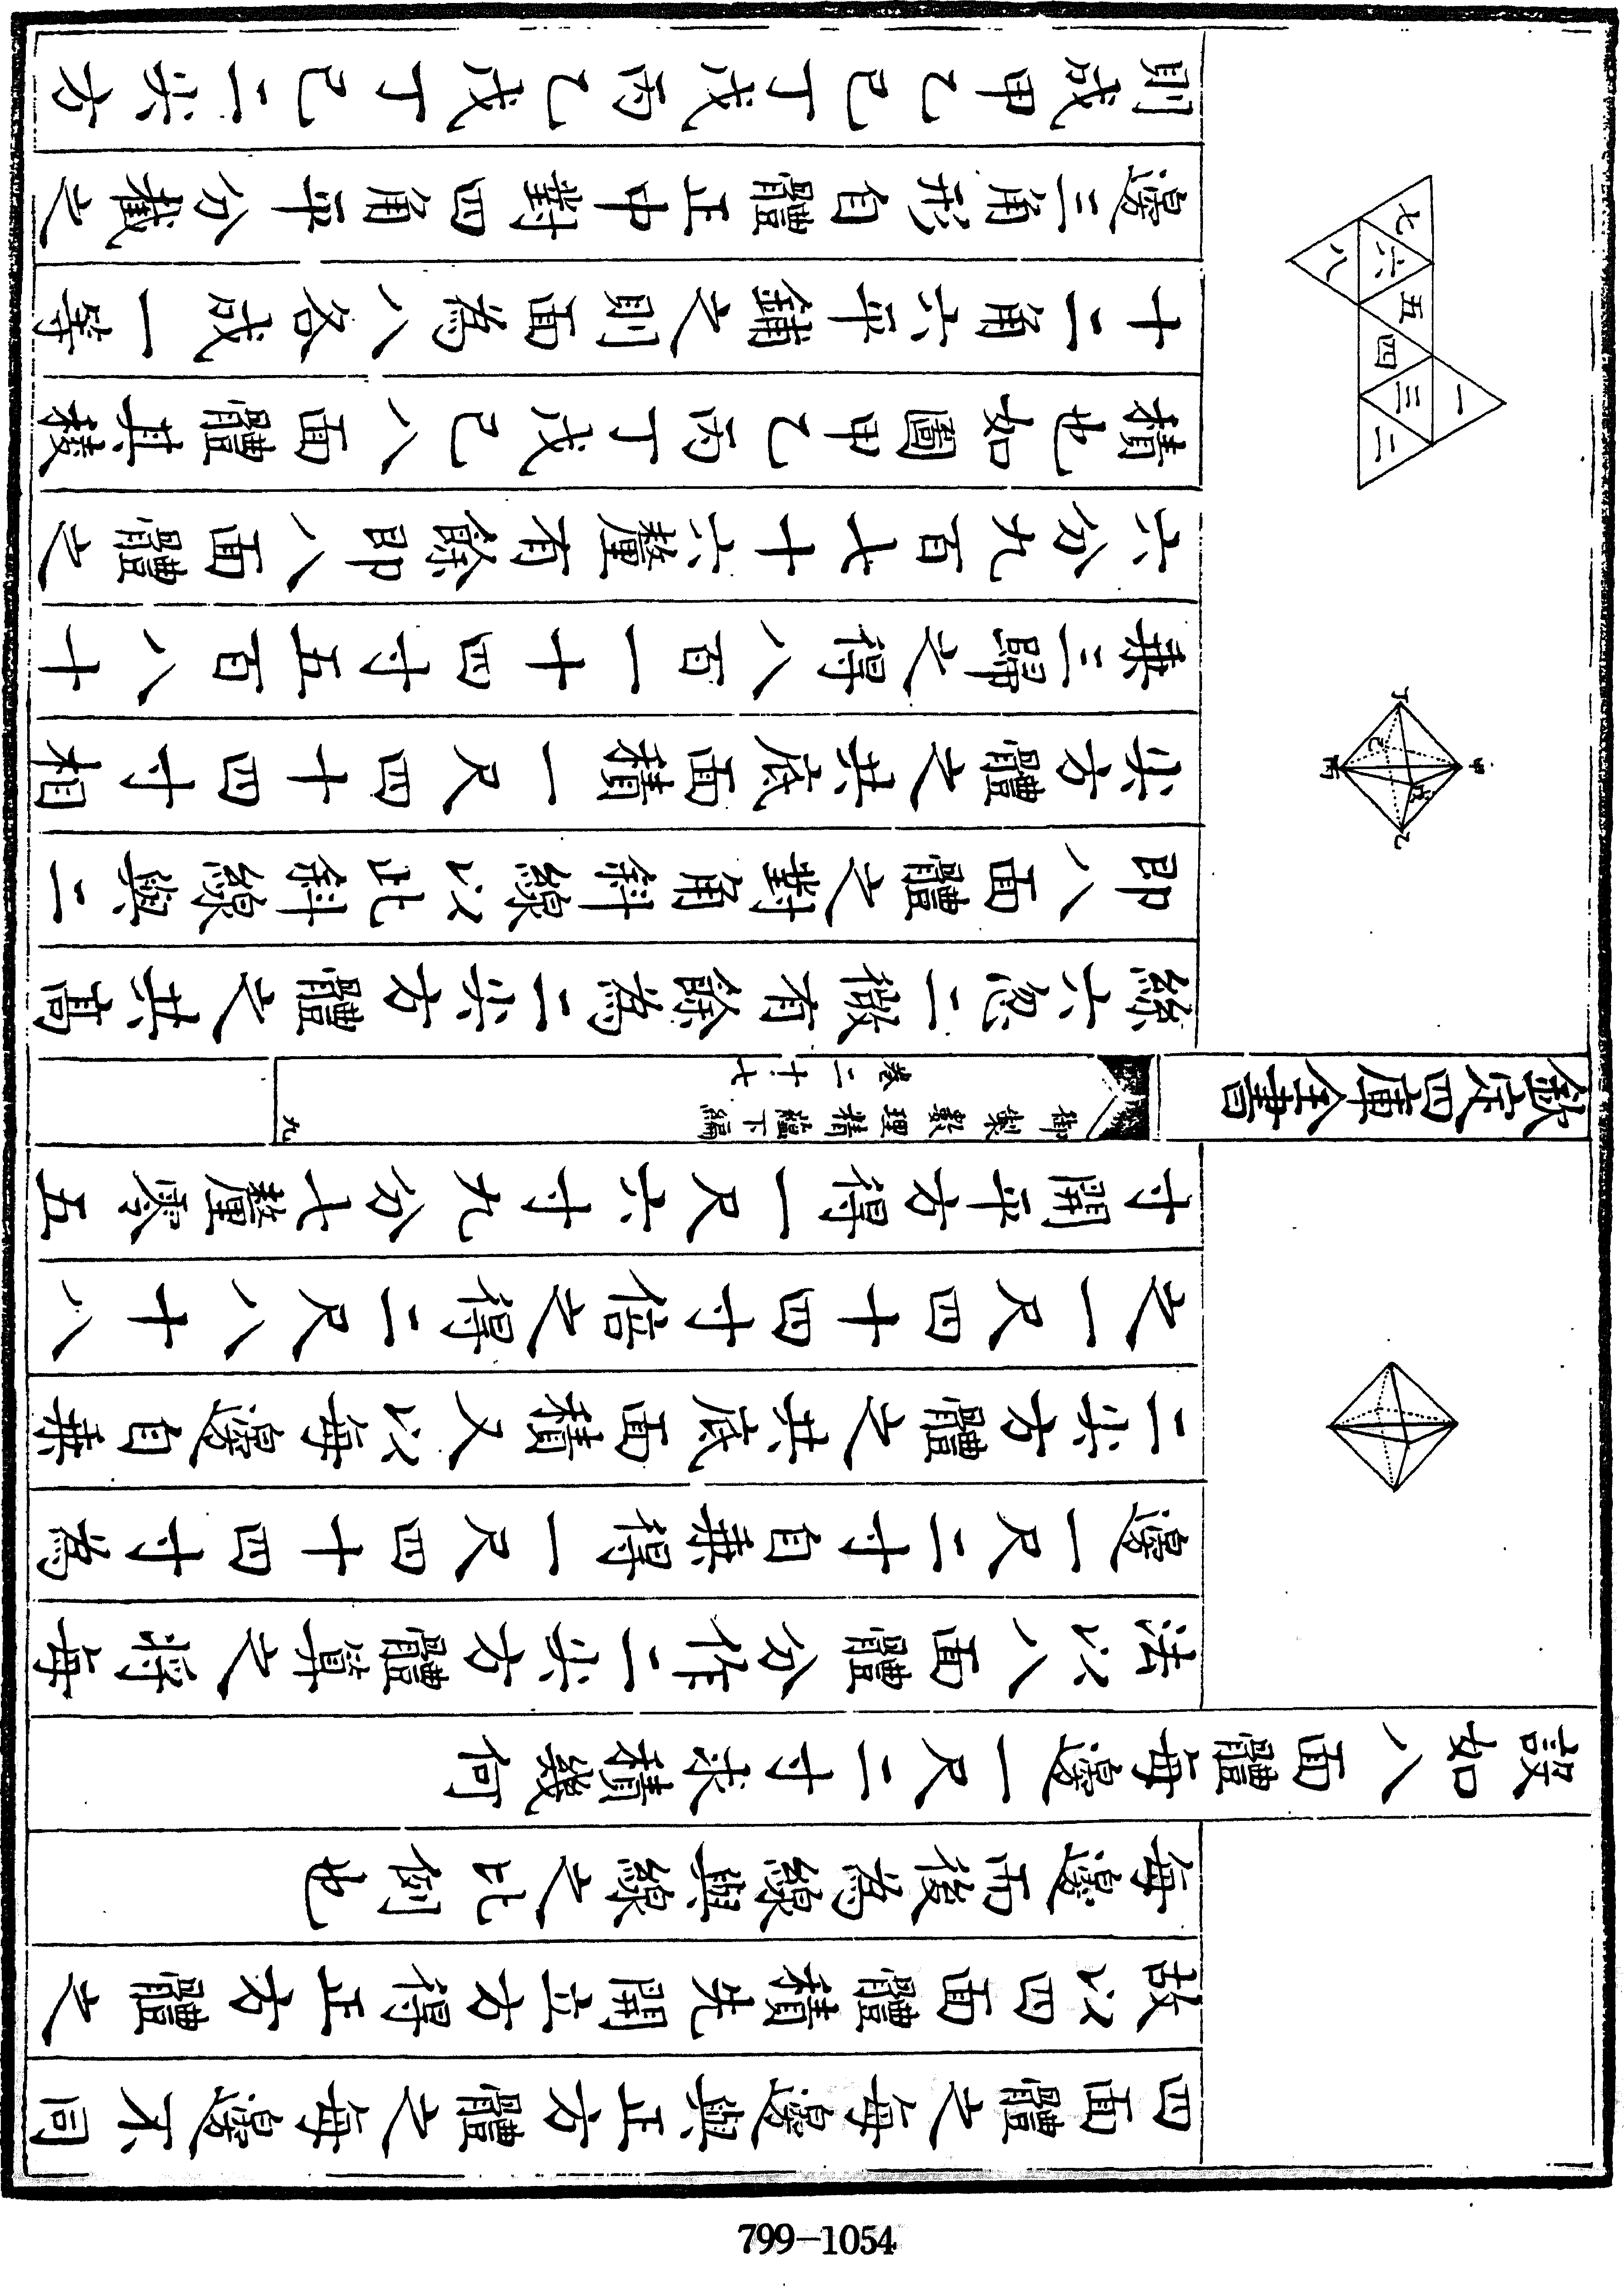 四面體之每邊與正方體之每邊不同
故以四面體積先開立方得正方體之
每邊而後為線與線之比例也
設如八面體每邊一尺二寸求積幾何
法以八面體分作二尖方體算之將每
邊一尺二寸自乗得一尺四十四寸為
二尖方體之共底面積又以每邊自乗
之一尺四十四寸倍之得二尺八十八
寸開平方得一尺六寸九分七釐零五
欽定四庫全書
御製數理精蘊下編
卷二十七
九
絲六忽二微有餘為二尖方體之共髙
即八面體之對角斜線以此斜線與二
尖方體之共底面積一尺四十四寸相
乗三歸之得八百一十四寸五百八十
六分九百七十六釐有餘即八面體之
甲
丁
己
戊
乙
丙
積也如圖甲乙丙丁戊己八面體其稜
十二角六平鋪之則面為八各成一等
邊三角形自體正中對四角平分截之
則成甲乙己丁戊丙乙戊丁己二尖方
一
二
三
四
五
六
七
八
799-1054